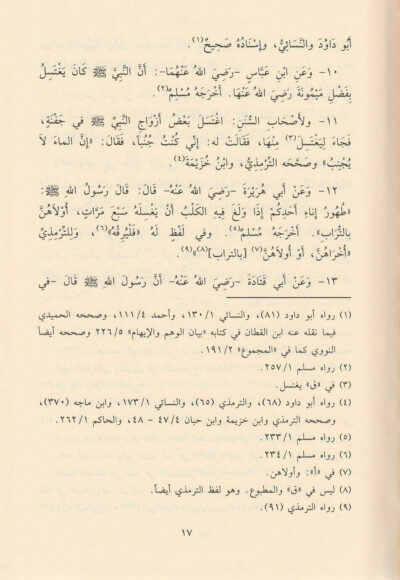 أَبُو دَاوُدَ والنَّسَائِيُّ، وإِسْنَادُهُ صَحِيحٌ(١).
١٠- وَعَنِ ابْنِ عَبَّاسٍ -رَضِيَ اللهُ عَنْهُمَا-: أَنَّ النَّبِيَّ ﷺ كَانَ يَغْتَسِلُ
بِفَضْلِ مَيْمُونَةَ رَضِيَ اللهُ عَنْهَا. أَخْرَجَهُ مُسْلِمٌ(٢).
١١- ولأَصْحَابِ السُّنَنِ: اغْتَسَلَ بَعْضُ أَزْوَاجِ النَّبِيِّ ﷺ في جَفْنَةٍ،
فَجَاءَ لِيَغْتَسِلَ(٣) مِنْهَا، فَقَالَتْ له: إِنِّي كُنْتُ جُنُباً، فَقَالَ: «إِنَّ الماءَ لاَ
يُجْنِبُ» وصَحَّحَه التِّرْمِذِيُّ، وابْنُ خُزَيْمَةَ(٤).
١٢- وَعَنْ أَبِي هُرَيْرَةَ -رَضِيَ اللهُ عَنْهُ- قَالَ: قَالَ رَسُولُ اللهِ ﷺ:
«طُهُورُ إِنَاءِ أَحَدِكُمْ إِذَا وَلَغَ فِيهِ الكَلْبُ أَنْ يَغْسِلَهُ سَبْعَ مَرَّاتٍ، أُوْلاَهُنَّ
بِالتُّرَابِ». أَخْرَجَهُ مُسْلمٌ(٥). وفي لَفْظٍ لَهُ «فَلْيُرِقْهُ»(٦)، وَلِلتِّرْمِذِيِّ
«أُخْرَاهُنَّ، أَوْ أُولاَهُنَّ(٧) [بالتراب](٨)»(٩).
١٣- وَعَنْ أَبِي قَتَادَةَ -رَضِيَ اللهُ عَنْهُ- أَنَّ رَسُولَ اللهِ ﷺ قَالَ -في
(١) رواه أبو داود (٨١)، والنسائي ١٣٠/١، وأحمد ١١١/٤، وصححه الحميدي
فيما نقله عنه ابن القطان في كتابه «بيان الوهم والإيهام» ٢٢٦/٥ وصححه أيضاً
النووي كما في «المجموع» ١٩١/٢.
(٢) رواه مسلم ٢٥٧/١.
(٣) في «ق» يغتسل.
(٤) رواه أبو داود (٦٨)، والترمذي (٦٥)، والنسائي ١٧٣/١، وابن ماجه (٣٧٠)،
وصححه الترمذي وابن خزيمة وابن حبان ٤٧/٤ - ٤٨، والحاكم ٢٦٢/١.
(٥) رواه مسلم ٢٣٣/١.
(٦) رواه مسلم ٢٣٤/١.
(٧) في «أ»: وأولاهن.
(٨) ليس في «ق» والمطبوع. وهو لفظ الترمذي أيضاً.
(٩) رواه الترمذي (٩١).
١٧